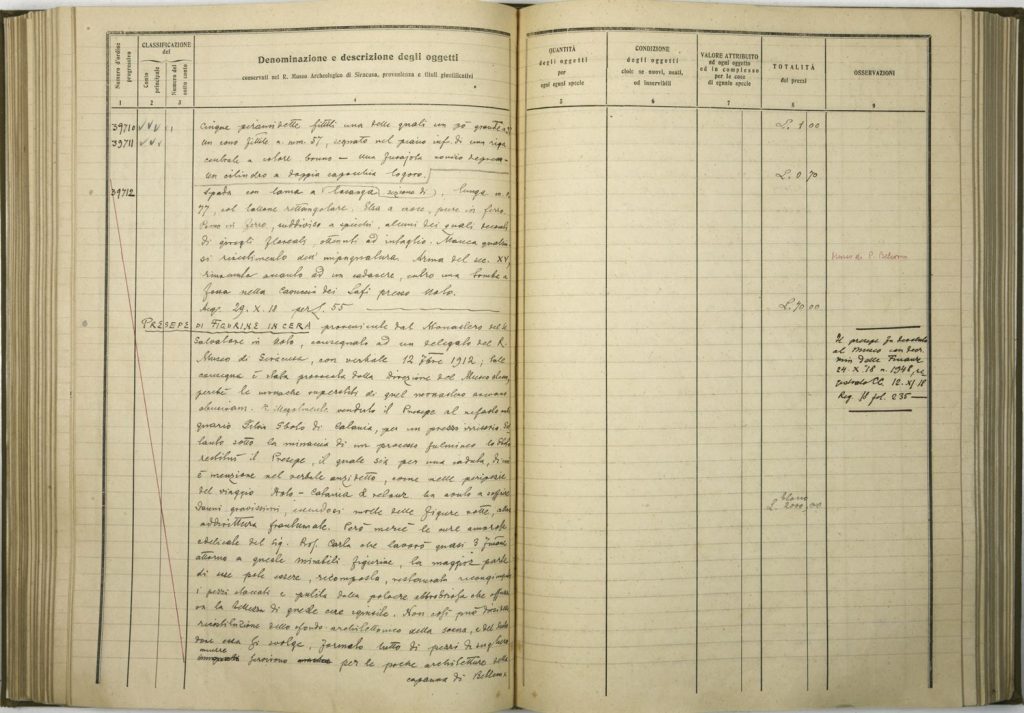 Numero d'ordine progressivo
CLASSIFICAZIONE del
Conto principale
Numero del sotto conto
Denominazione e descrizione degli oggetti
conservati nel R. Museo Archeologico di Siracusa, provenienza e titoli giustificativi
1 2 3 4
39710 Cinque piramidette fittili una delle quali un pò grande
39711 un cono fittile a. mm. 57, segnato nel piano inf. di una riga
centrale a colore bruno — una fusajola
un cilindro a doppia capocchia logoro.
39712 Spada con lama a losanga (sezione di), lunga m.
77, col tallone rettangolare. Elsa a croce, pure in ferro.
Pomo in ferro, suddiviso a spicchi, alcuni dei quali decorati
di girigli floreali, ottenuti ad intaglio. Manca
si rivestimento dell'impugnatura. Arma del sec. XV,
rinvenuta accanto ad un cadavere, entro una tomba a
fossa nella presso Noto.
Acq. 29. X. 18 per L. 55
PRESEPE DI FIGURINE IN CERA proveniente dal Monastero del S.
Salvatore in Noto, consegnato ad un delegato del R.
Museo di Siracusa, con verbale 12 1912; tale
consegna è stata provocata dalla direzione del Museo
perchè le monache superstiti di quel monastero avevano
abusivam. e illegalmente venduto il Presepe al
quario Silvio Sboto di Catania, per un prezzo irrisorio.
tanto sotto la minaccia di un processo fulmineo lo
restituì il Presepe, il quale sia per una caduta, di cui
è menzione nel verbale anzidetto, come nelle peripezie
del viaggio Noto - Catania e retour ha avuto a soffrire
danni gravissimi, essendosi molte delle figure rotte,
addirittura frantumate. Però mercè le cure amorose
e delicate del Sig. Prof. Carta che lavorò quasi 3
attorno a queste mirabili figurine, la maggior parte
di esse potè essere, ricomposta, restaurata
i pezzi staccati e pulita dalla polvere
va la bellezza di quelle cere squisite. Non così può dirsi della
ricostituzione dello sfondo architettonico della scena, e del
dove essa si svolge, formato tutto di pezzi di sughero
per le poche architetture della
capanna di Betlemme
QUANTITÀ
degli oggetti
per
ogni specie
CONDIZIONE
degli oggetti
cioè: se nuovi, usati,
od inservibili
VALORE ATTRIBUITO
ad ogni oggetto
ed in complesso
per le cose
di eguale specie
TOTALITÀ
dei prezzi
OSSERVAZIONI
5 6 7 8 9
L. 1 00
L. 0 70
Museo di P. Bellomo
L. 70 00
Il presepe fu devoluto
al Museo con decr.
min. delle Finanze
24. X. 18 n. 1948,
12. XI 18
Reg. fol. 235
L. 2000,00